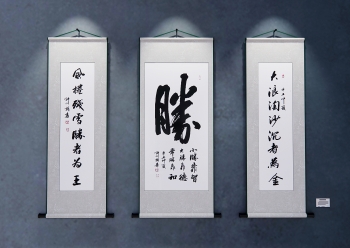 大浪淘沙沉者為金
勝
小勝靠智
大勝靠德
常勝靠和
風捲殘雪勝者為王